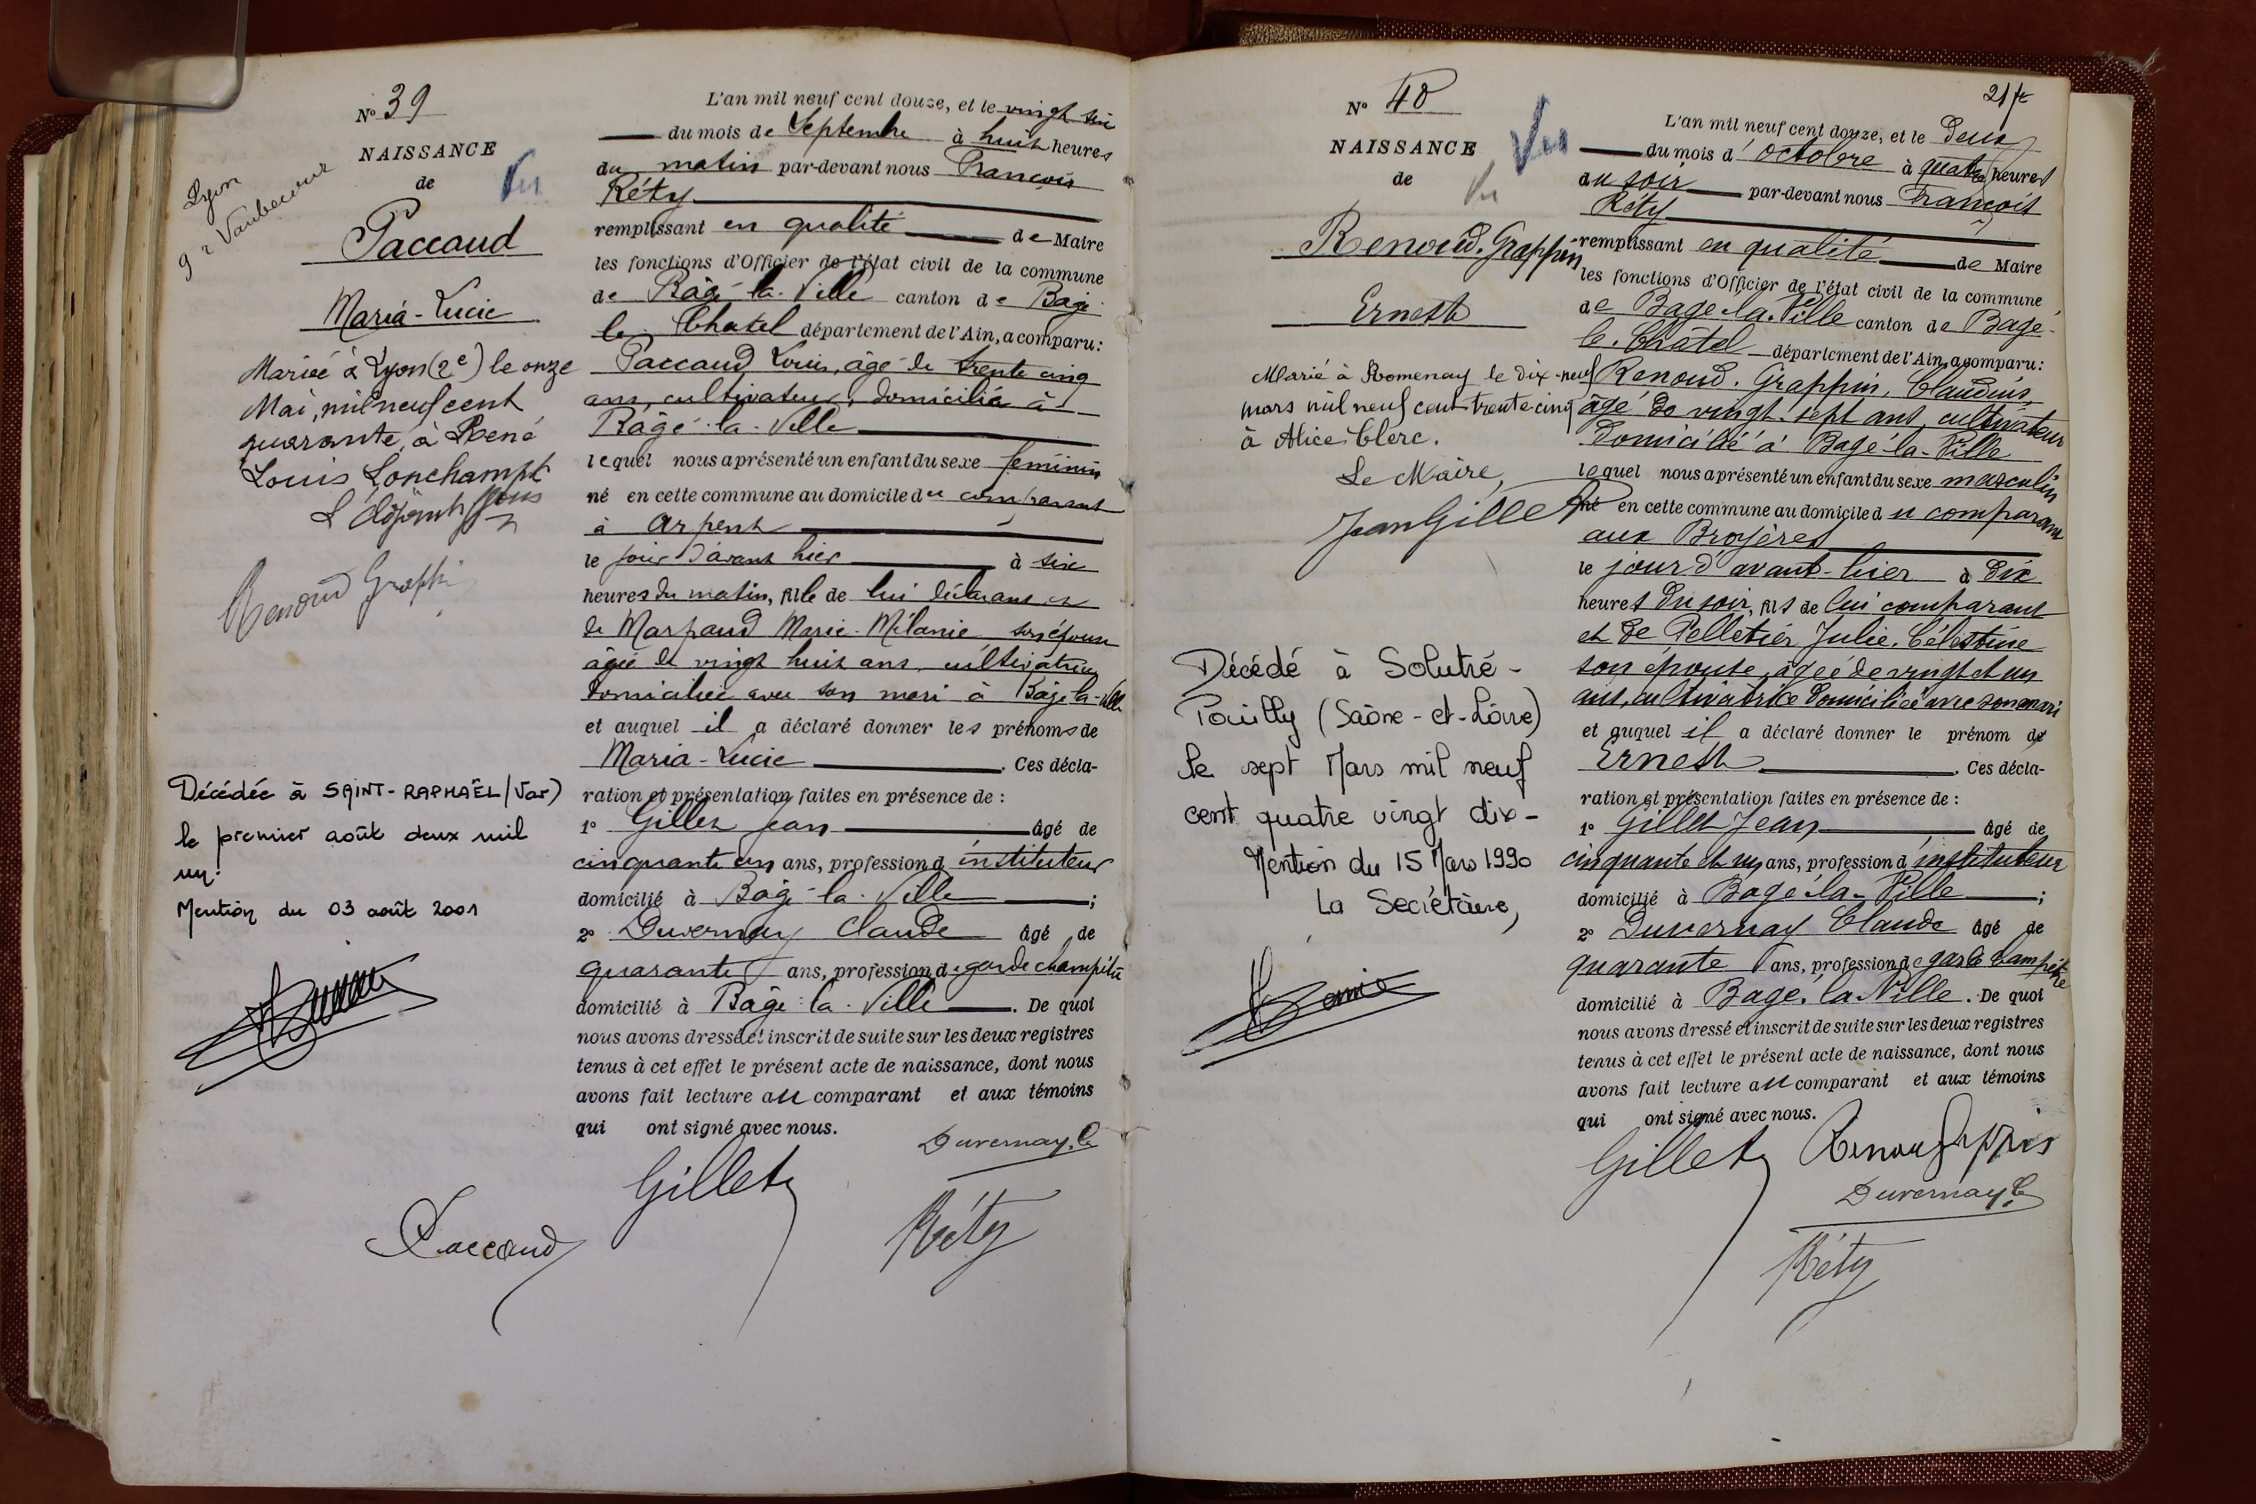 N° 39
NAISSANCE
de
Vu
Lyon
9 r Vaubecour
Paccaud
Maria-Lucie
Mariée à Lyon (2e) le onze
Mai, mil neuf cent
quarante, à René
Louis Lonchampt
L'adjoint
Renoud Grappin
Décédée à SAINT-RAPHAËL (Var)
le premier août deux mil
un.
Mention du 03 août 2001
L'an mil neuf cent douze, et le vingt six
du mois de Septembre à huit heures
du matin par-devant nous François
Réty
remplissant en qualité de Maire
les fonctions d'Officier de l'état civil de la commune
de Bâgé-la-Ville canton de Bagé-
le-Chatel département de l'Ain, a comparu:
Paccaud Louis, âgé de trente cinq
ans, cultivateur, domicilié à
Bâgé-la-Ville
lequel nous a présenté un enfant du sexe féminin
né en cette commune au domicile du comparant
à Arpent
le jour d'avant hier à six
heures du matin, fille de lui déclarant et
de Marpaud Marie-Mélanie son épouse
âgée de vingt huit ans, cultivatrice
domiciliée avec son mari à Bâgé-la-Ville
et auquel il a déclaré donner les prénoms de
Maria-Lucie . Ces décla-
ration et présentation faites en présence de :
1° Gillet Jean âgé de
cinquante un ans, profession d'instituteur
domicilié à Bâgé-la-Ville ;
2° Duvernay Claude âgé de
quarante ans, profession de garde champêtre
domicilié à Bâgé-la-Ville . De quoi
nous avons dressé et inscrit de suite sur les deux registres
tenus à cet effet le présent acte de naissance, dont nous
avons fait lecture au comparant et aux témoins
qui ont signé avec nous.
Duvernay C
Gillet
Paccaud
Réty
21 fe
N° 40
NAISSANCE
de
Vu
Vu
Renoud-Grappin
Ernest
Marié à Romenay le dix-neuf
mars mil neuf cent trente-cinq
à Alice Clerc.
Le Maire,
Jean Gillet
Décédé à Solutré-
Pouilly (Saône-et-Loire)
le sept Mars mil neuf
cent quatre vingt dix-
Mention du 15 Mars 1990
La Secrétaire,
L'an mil neuf cent douze, et le deux
du mois d'octobre à quatre heures
du soir par-devant nous François
Réty
remplissant en qualité de Maire
les fonctions d'Officier de l'état civil de la commune
de Bagé-la-Ville canton de Bagé-
le-Châtel département de l'Ain, a comparu:
Renoud-Grappin, Claudius,
âgé de vingt-sept ans, cultivateur
domicilié à Bagé-la-Ville
lequel nous a présenté un enfant du sexe masculin
né en cette commune au domicile du comparant
aux Broyères
le jour d'avant-hier à dix
heures du soir, fils de lui comparant
et de Pelletier Julie-Célestine
son épouse, âgée de vingt et un
ans, cultivatrice domiciliée avec son mari
et auquel il a déclaré donner le prénom de
Ernest . Ces décla-
ration et présentation faites en présence de :
1° Gillet Jean âgé de
cinquante et un ans, profession d'instituteur
domicilié à Bagé-la-Ville ;
2° Duvernay Claude âgé de
quarante ans, profession de garde champêtre
domicilié à Bagé-la-Ville . De quoi
nous avons dressé et inscrit de suite sur les deux registres
tenus à cet effet le présent acte de naissance, dont nous
avons fait lecture au comparant et aux témoins
qui ont signé avec nous.
Gillet Renoud Grappin
Duvernay C
Réty